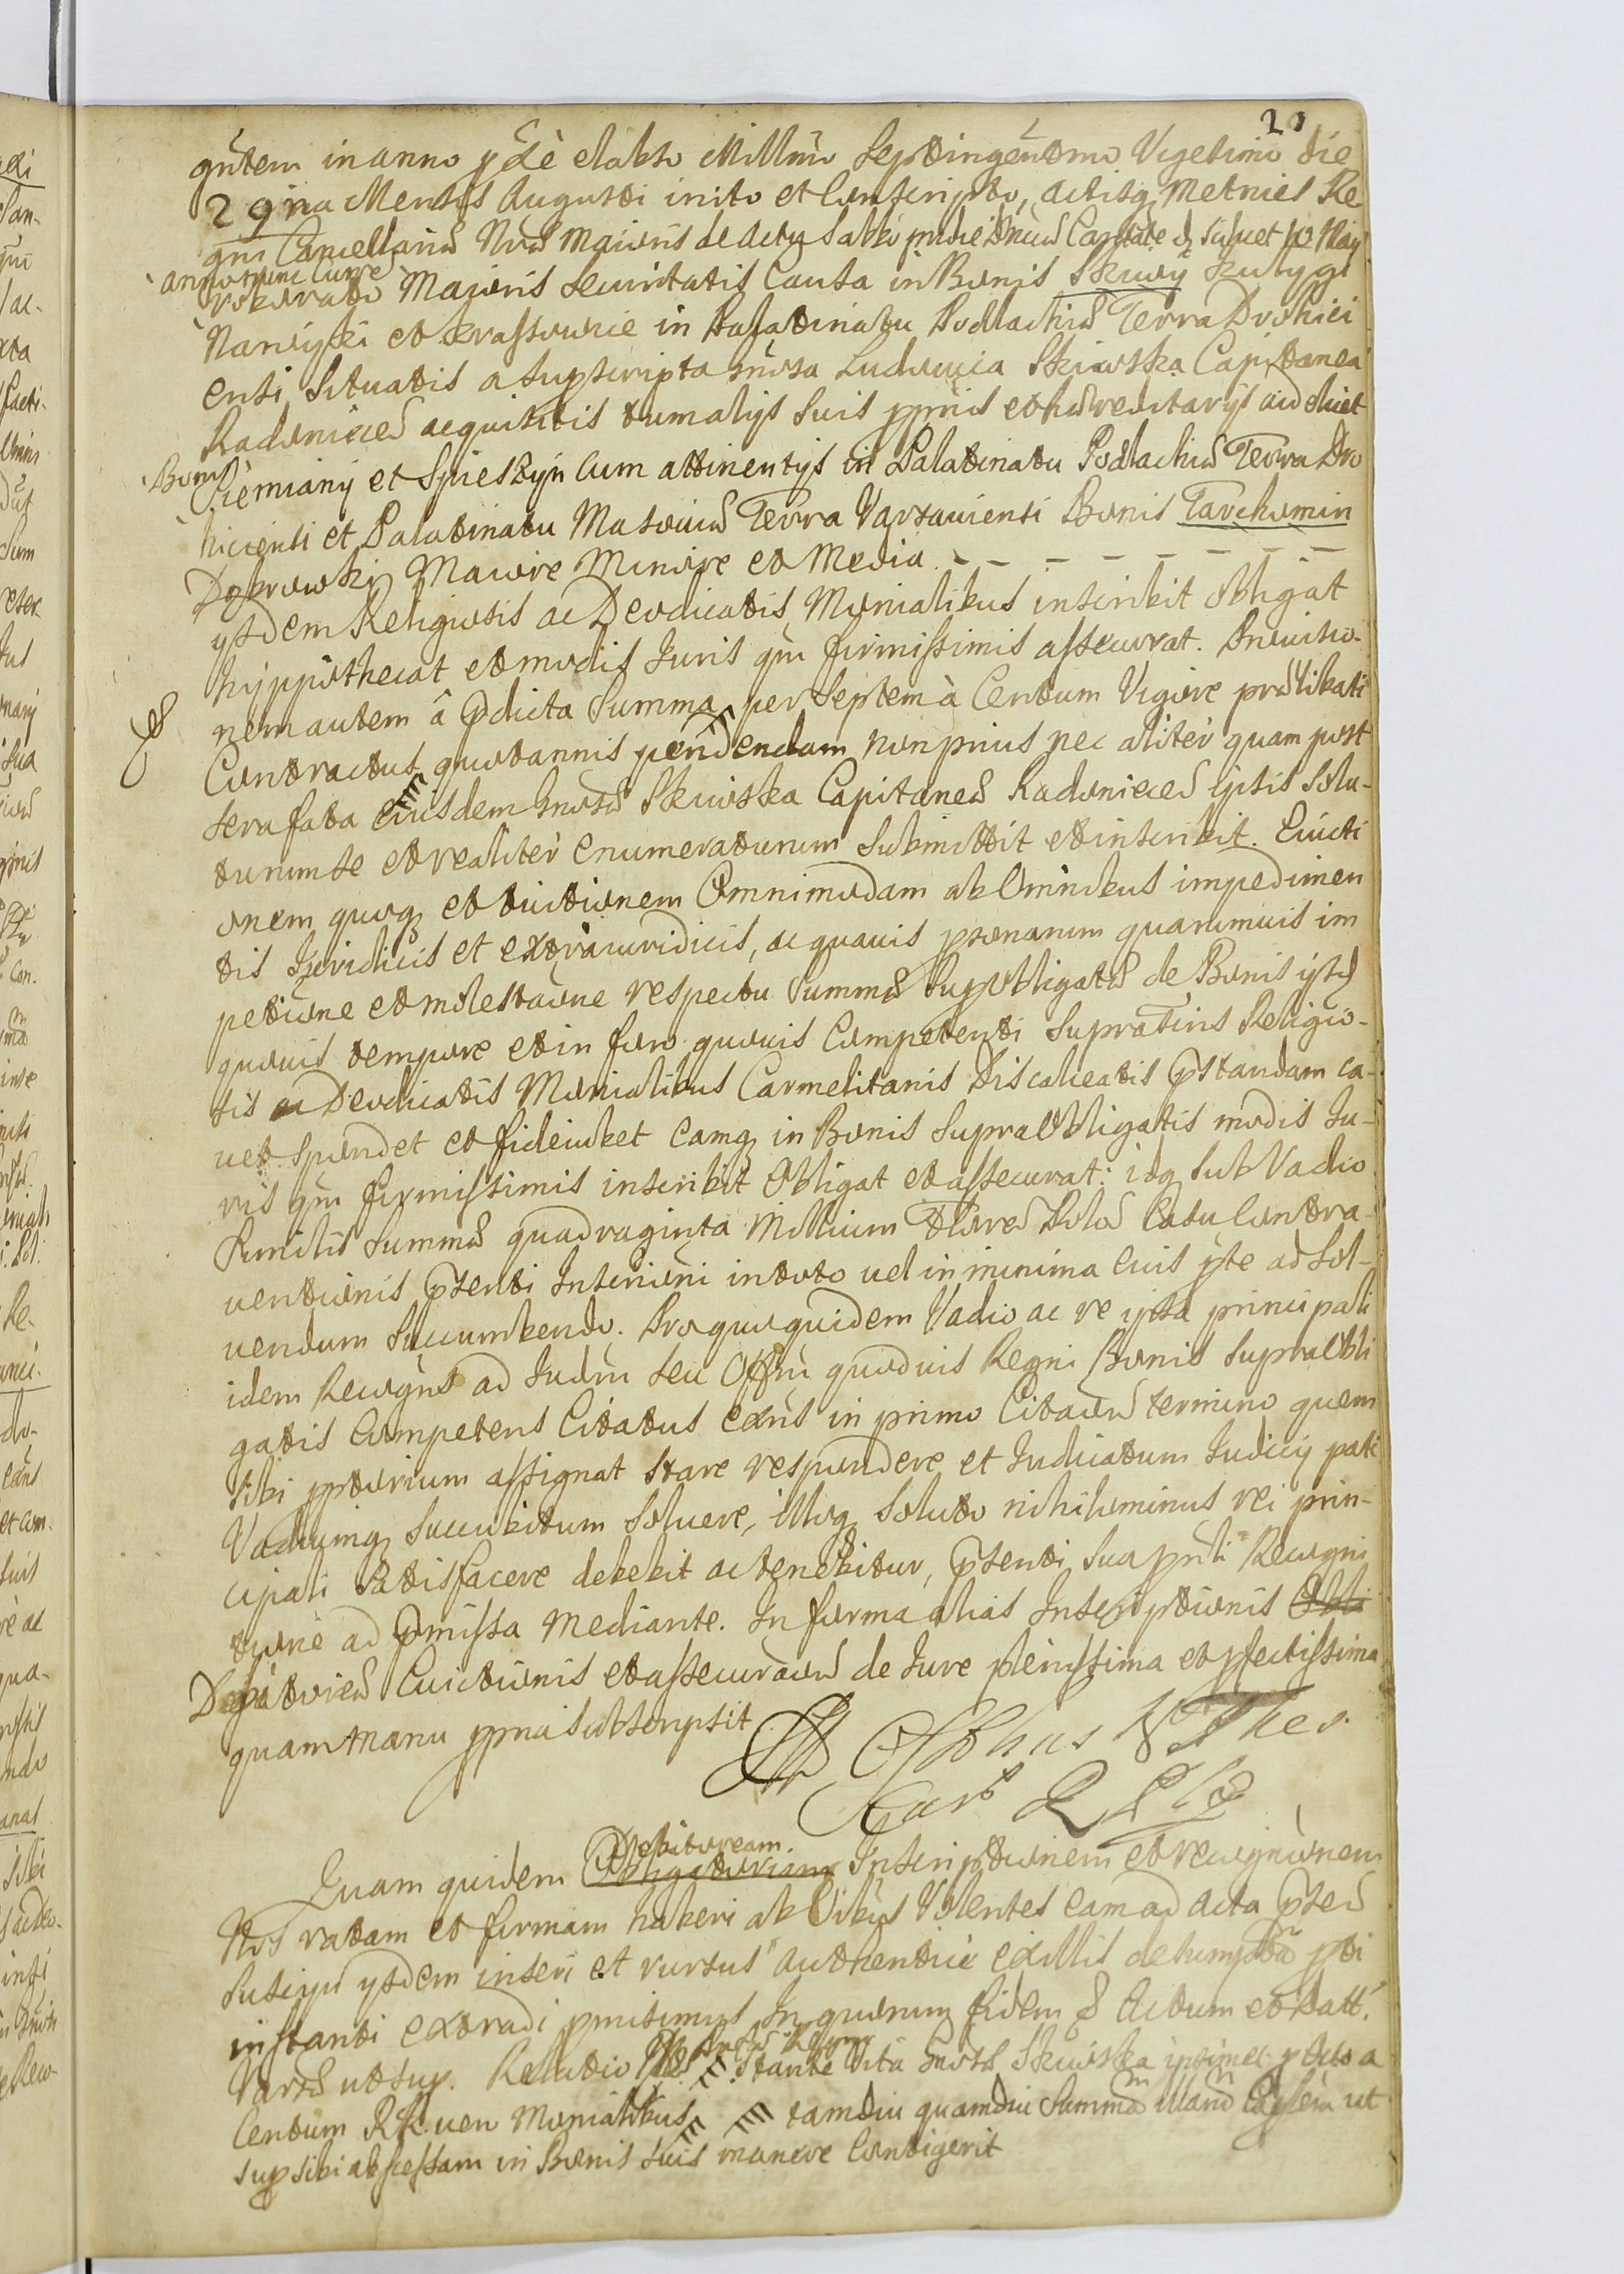 20
gntem in anno pde elabso Millmo Septingentmo Vigesimo die
29na Mensis Augusti inito et Conscripto, actisq Metrices Re
gni Cancellariæ Nræ Maioris de actu Sabbi
annotationi Curæ
roborato Maioris Securitatis Causa in Bonis Skiwy
Narwyski et Krassowice in Palatinatu Podlachiæ Terra Drohici
ensi Situatis a Supscripta Gnosa Ludovica Skiwska Capitanea
Radoniceñ acquisitis tum alijs Suis pprijs et hæreditarijs
Bonis
Siemiany et Spieszyn Cum attinentijs in Palatinatu Podlachiæ Terra Dro
hiciensi et Palatinatu Masoviæ Terra Varsaviensi Bonis Tarchomin
Dąbrowki Maiore Minore et Media. - - - - - - - -
ysdem Religiosis ac Devdicatis Monialibus inscribit Obligat
hyppothecat et modis Juris qm firmissimis assecurat. Provisio-
nem autem â pdicta Summa per Septem à Centum Vigore prælibati
Contractus quotannis pendendam non prius nec aliter quam post
sera fata eiusdem Gnosæ Skiwska Capitaneæ Radoniceñ ipsis Solu-
turum se et realiter enumeraturum Submittit et inscribit. Evicti
onem quoq et tuitionem Omnimodam ab Omnibus impedimen
tis Juridicis et extraiuridicis, ac quavis psonarum quarumvis im
petitione et molestaone respectu Summæ Supobligatæ de Bonis ysd
quovis tempore et in foro quovis Competenti Supratiris Religio-
sis ac Devdicatis Monialibus Carmelitanis Discalceatis pstandam ca-
vet spondet et fideiubet eamq in Bonis Supra Obligatis modis Ju-
ris qm firmissimis inscribit Obligat et assecurat: idq Sub Vadio
Similis Summæ quadraginta Millium floreñ Poloñ Casu Contra-
ventionis psenti Inscrioni in toto vel in minima eius pte ad Sol-
vendum Succumbendo. Pro quo quidem Vadio ac re ipsa principali
idem Recogns ad Judm seu Offm quodvis Regni Bonis SupraObli
gatis Competens Citatus exns in primo Citaoñ termino quem
sibi pptorium assignat Stare respondere et Judicatum Judicij pati
Vadiumq Succubitum Solvere, illoq Soluto nihilominus rei prin-
cipali Satisfacere debebit ac tenebitur, psenti Sua psnli Recogni
tione ad pmissa Mediante. In forma alias Inscriptionis Obli
Debitorieñ Evictionis et assecuraoñ de Jure plenissima et pfectissima
quam manu ppria Subscripsit
Quam quidem Obligatoriam Debitoream Inscriptionem et recognionem
Nos ratam et firmam haberi ab Oibus Volentes eam ad acta psteñ
Suscipi ysdem inseri et rursus authentice ex illis desumptã pti
instanti extradi pmisimus In quorum fidem & Actum et Datt.
Varsæ ut sup. Relatio Stante Vita Gnosæ Skiwska ipsimet post a
Centum Rh ven Monialibus tamdiu quamdiu Summã illam Capitlem ut
sup sibi abscessam in Bonis Suis manere Contigerit